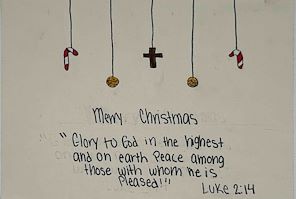 Merry Christmas
"Glory to God in the highest
and on earth Peace among
those with whom he is
Pleased!!"
Luke 2:14